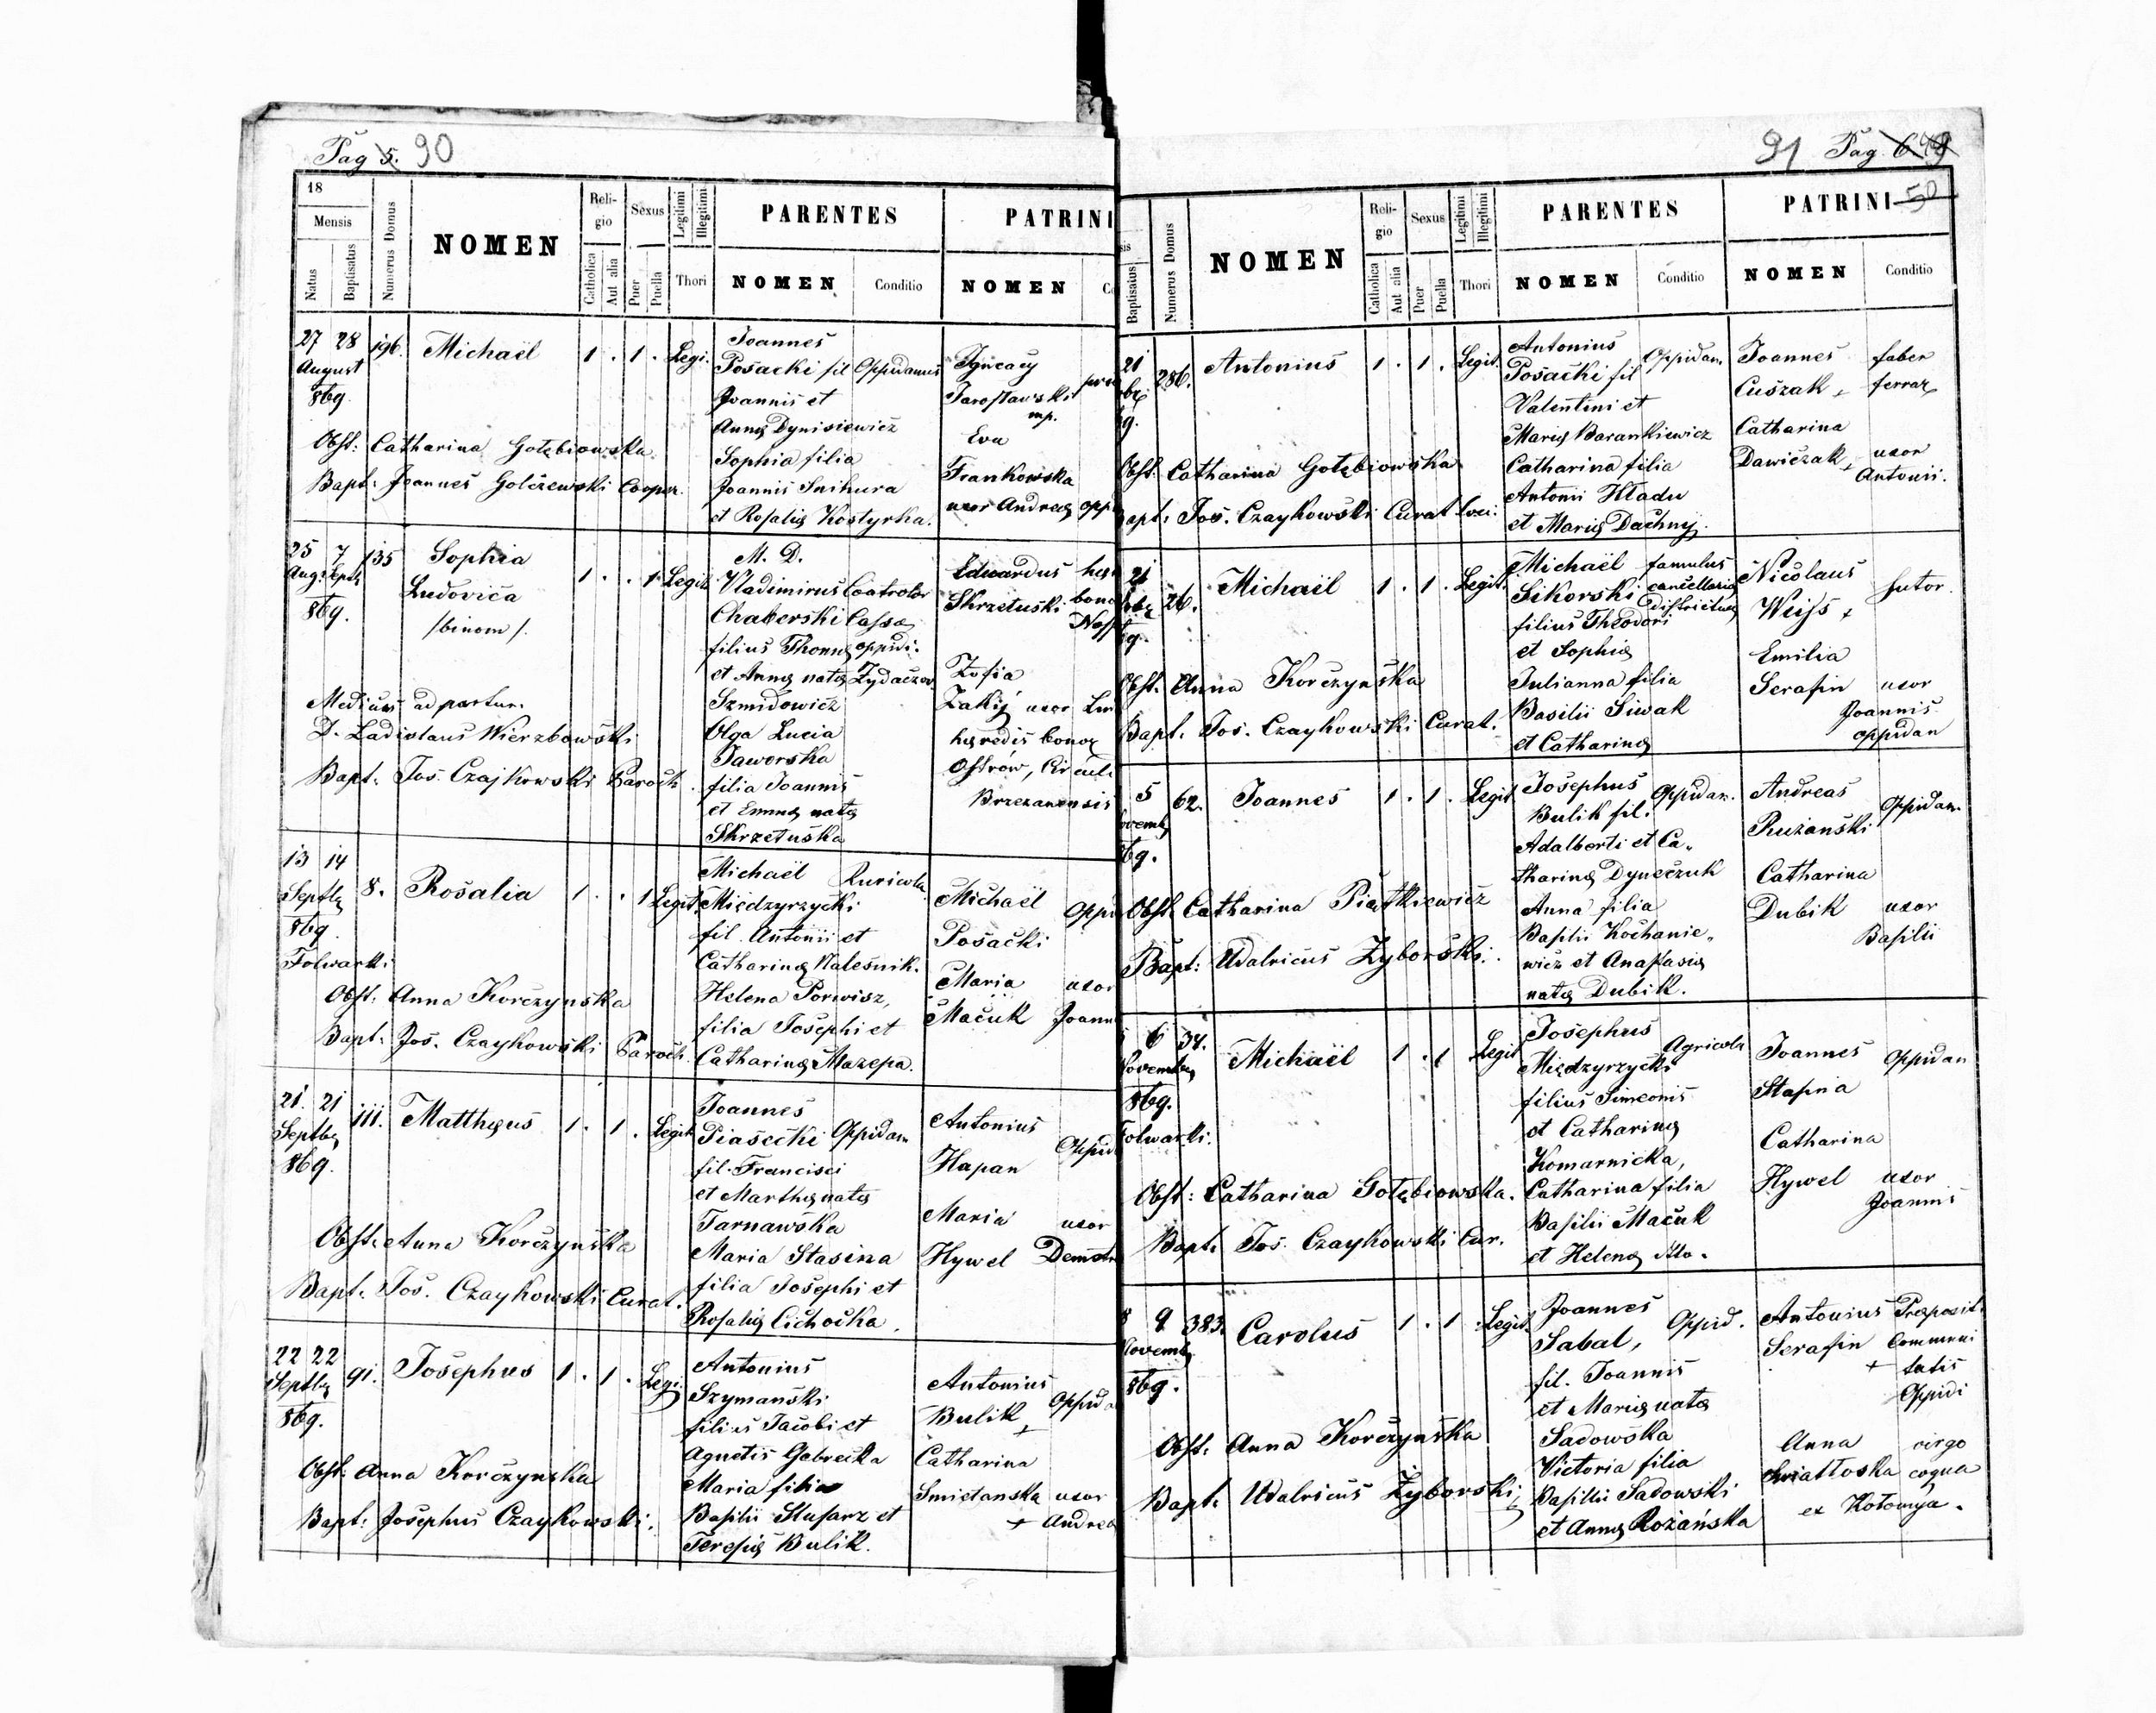 Pag 5. 90
18
Mensis
Natus
Baptisatus
Numerus Domus
NOMEN
Religio
Catholica
Aut alia
Sexus
Puer
Puella
Legitimi
Illegitimi
Thori
PARENTES
NOMEN
Conditio
PATRINI
NOMEN
27 28 196. Michaël 1 . 1 . Legi.
August
869.
Joannes
Posacki fil Oppidanus
Joannis et
Annę Dynisiewicz
Sophia filia
Joannis Snihura
et Rosalię Kostyrka.
Ignacy
Jarosławski
mp.
Eva
Frankowska
uxor Andreę opp
Obst: Catharina Gołębiowska
Bapt: Joannes Golczewski Cooper.
25 7 135 Sophia 1 . . 1 Legit
Aug. Septb
869.
Ludovica
/binom/.
M. D.
Vladimirus Controlor
Chaberski Cassę
filius Thomę oppidi.
et Annę natę Zydaczow.
Szmidowicz
Olga Lucia
Jaworska
filia Joannis
et Emmę natę
Skrzetuska
Edwardus
Skrzetuski bono
Zofia
Zakij uxor
hęredis bonor
Ostrow, Circuli
Brzezanensis
Medicus ad partum
D. Ladislaus Wierzbowski
Bapt. Jos. Czajkowski Paroch.
13 14 8. Rosalia 1 . . 1 Legit.
Septbr
869.
Folwarki
Michaël Ruricola
Międzyrzycki
fil. Antonii et
Catharinę Nalesnik.
Helena Porwisz,
filia Josephi et
Catharinę Mazepa.
Michaël Oppi
Posacki
Maria uxor
Macuk Joann
Obst. Anna Korczynska
Bapt. Jos. Czaykowski Paroch.
21. 21 111. Matthęus 1 . 1 . Legit
Septbr
869.
Joannes
Piasecki Oppidan
fil. Francisci
et Marthę natę
Tarnawska
Maria Stasina
filia Josephi et
Rosalię Cichocka
Antonius
Hapan Oppid
Maria uxor
Hywel Demetr
Obst. Anna Korczynska
Bapt. Jos. Czaykowski Curat.
22 22 91. Josephus 1 . 1 . Legi
Septbr
869.
Antonius
Szymanski
filius Jacobi et
Agnetis Gebrecka
Maria filia
Basilii Slusarz et
Teresię Bulik.
Antonius
Bulik Oppida
Catharina
Smietanska uxor
+ Andreę
Obst. Anna Korczynska
Bapt. Josephus Czaykowski.
91 Pag. 6 49
50
Baptisatus
Numerus Domus
NOMEN
Religio
Catholica
Aut alia
Sexus
Puer
Puella
Legitimi
Illegitimi
Thori
PARENTES
NOMEN
Conditio
PATRINI
NOMEN
Conditio
21 286. Antonius 1 . 1 . Legit.
Antonius
Posacki fil Oppidan.
Valentini et
Marię Barankiewicz
Catharina filia
Antonii Kładu
et Marię Dachnij.
Joannes faber
Cuszak + ferrar
Catharina
Dawiczak + uxor
Antonii.
Obst. Catharina Gołębiowska
Bapt. Jos. Czaykowski Curat loci.
21 26. Michaël 1 . 1 . Legit.
Michaël famulus
Sikorski cancellarię
filius Theodori districtus
et Sophię
Julianna filia
Basilii Siwak
et Catharinę
Nicolaus sutor.
Weiss +
Emilia
Serafin uxor
Joannis
oppidan
Obst. Anna Korczynska
Bapt. Jos. Czaykowski Curat.
5 62. Joannes 1 . 1 . Legit
ovemb
869.
Josephus Oppidan.
Bulik fil.
Adalberti et Ca-
tharinę Dyneczuk
Anna filia
Basilii Kochanie-
wicz et Anastasię
natę Dubik.
Andreas
Ruzanski Oppidan
Catharina
Dubik uxor
Basilii
Obst. Catharina Piątkiewicz
Bapt: Udalricus Zyborski.
6 34. Michaël 1 . 1 Legit
ovembr
869.
Folwarki.
Josephus
Międzyrzycki Agricola
filius Simeonis
et Catharinę
Komarnicka,
Catharina filia
Basilii Macuk
et Helenę Klo.
Joannes Oppidan
Stapna
Catharina
Hywel uxor
Joannis
Obst: Catharina Gołębiowska.
Bapt. Jos. Czaykowski Cur.
8 9 383. Carolus 1 . 1 Legit.
ovemb
869.
Joannes
Sabal, Oppid.
fil. Joannis
et Marię natę
Sadowska
Victoria filia
Basilii Sadowski
et Annę Rożańska
Antonius Pręposit.
Serafin Communi
+ tatis
Oppidi
Anna virgo
Swiattoska cogna
ex Kołomya.
Obst. Anna Korczynska
Bapt. Udalricus Żyborski